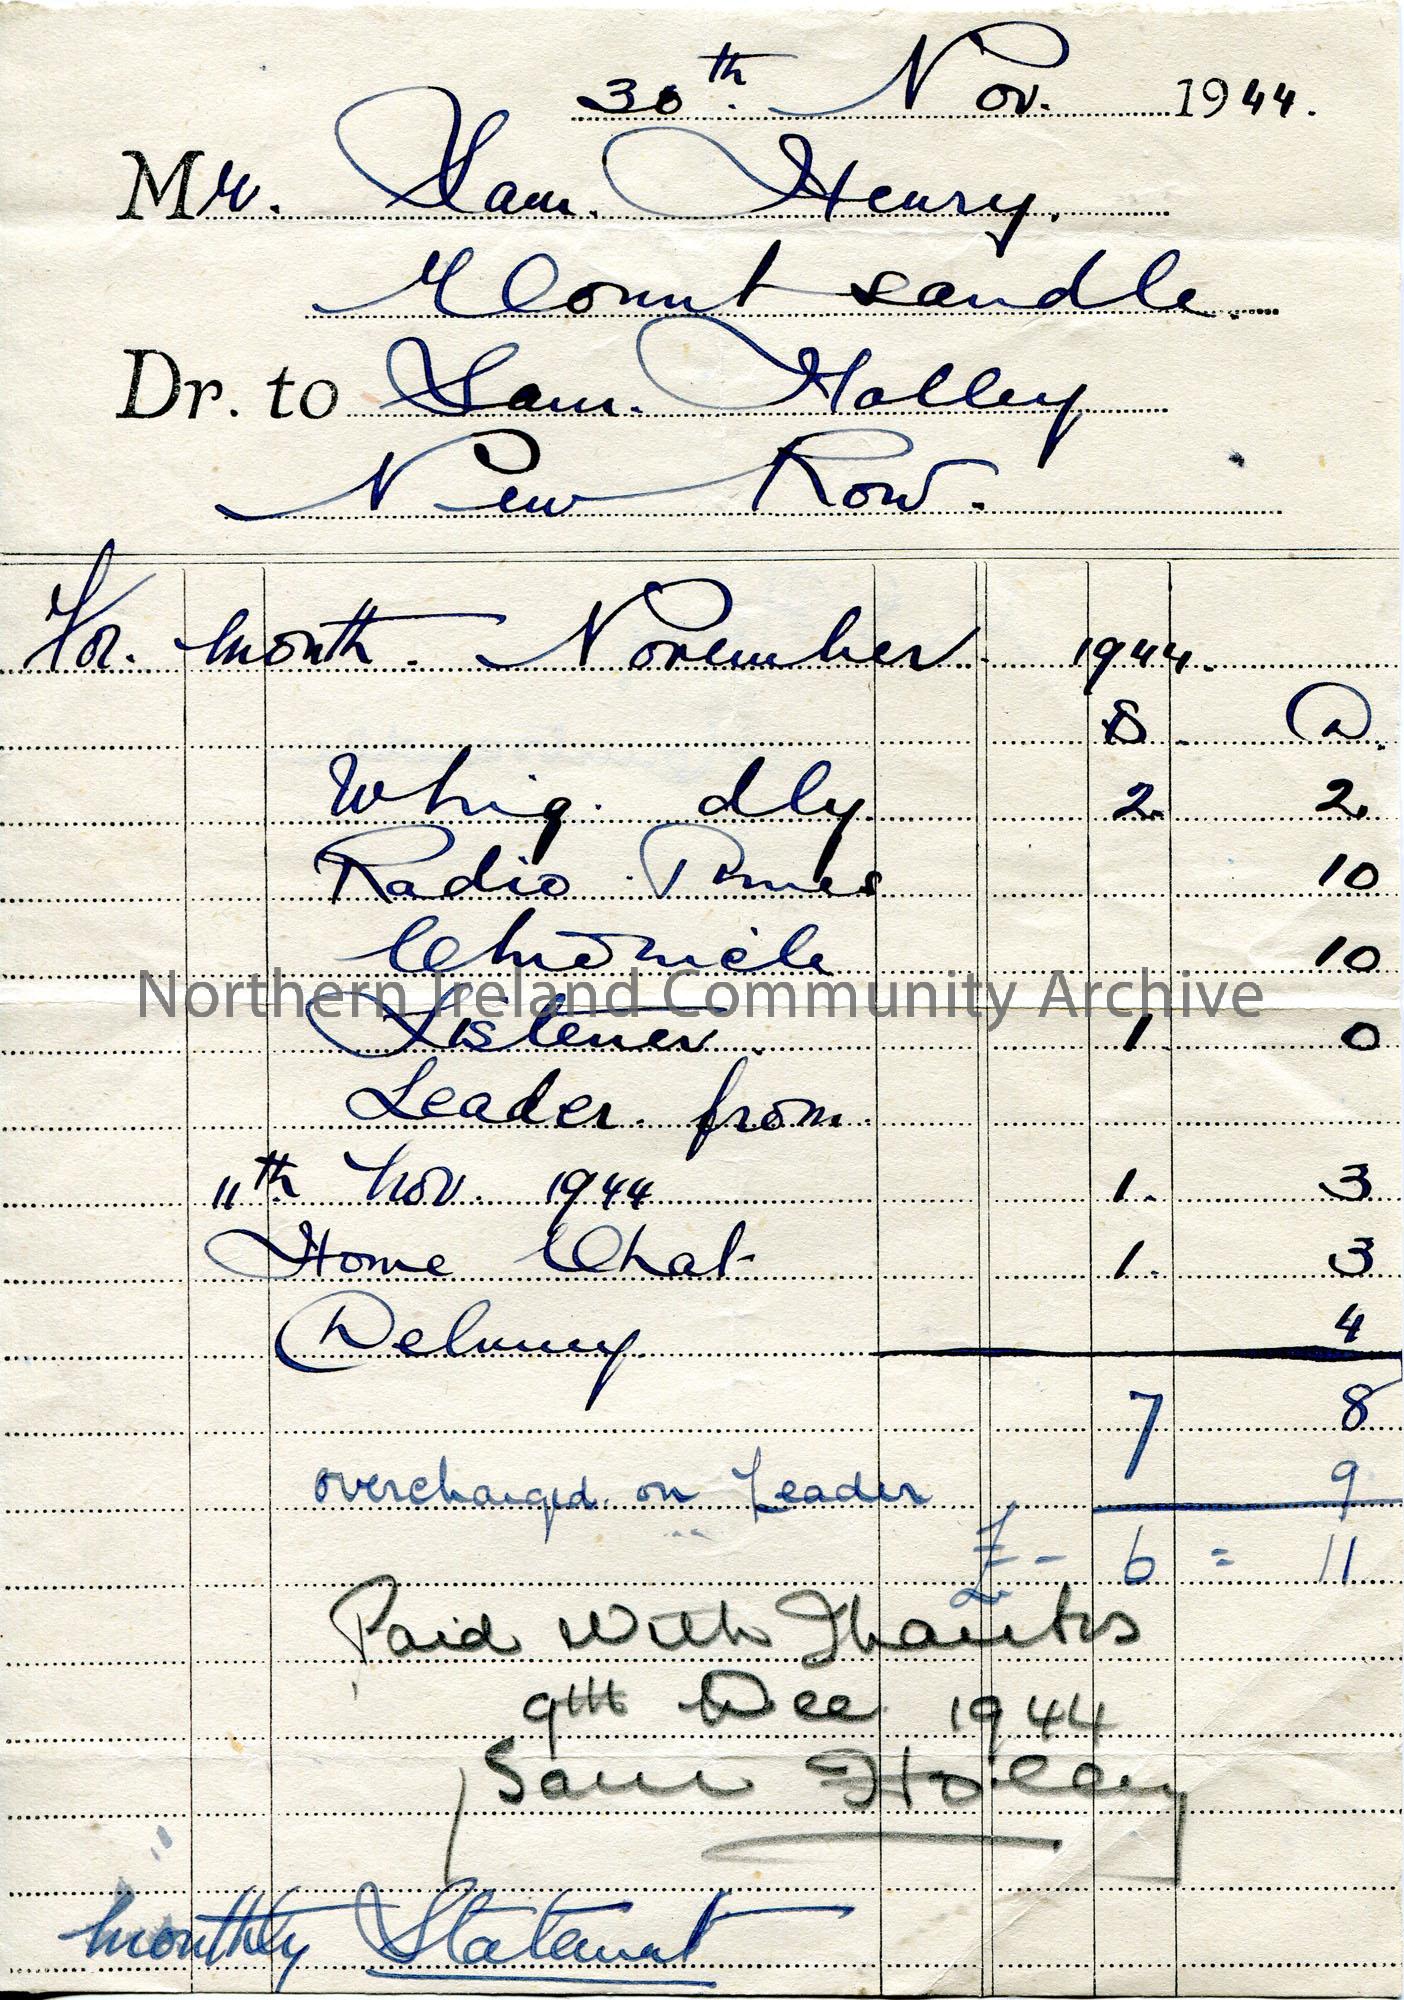 30th. Nov. 1944.
Mr. Sam. Henry.
Mount sandle.
Dr. to Sam. Holley
New Row.
For. month. November. 1944.
S. D.
Whig. dly. 2. 2.
Radio Times 10
Chronicle 10
Northern Ireland Community Archive
Listener. 1. 0
Leader. from.
11th Nov. 1944 1. 3
Home Chat 1. 3
Delivery. 4
7 8
overcharged. on Leader 9
£ - 6 = 11
Paid With Thanks
9th Dec 1944
Sam Holley
Monthly Statement